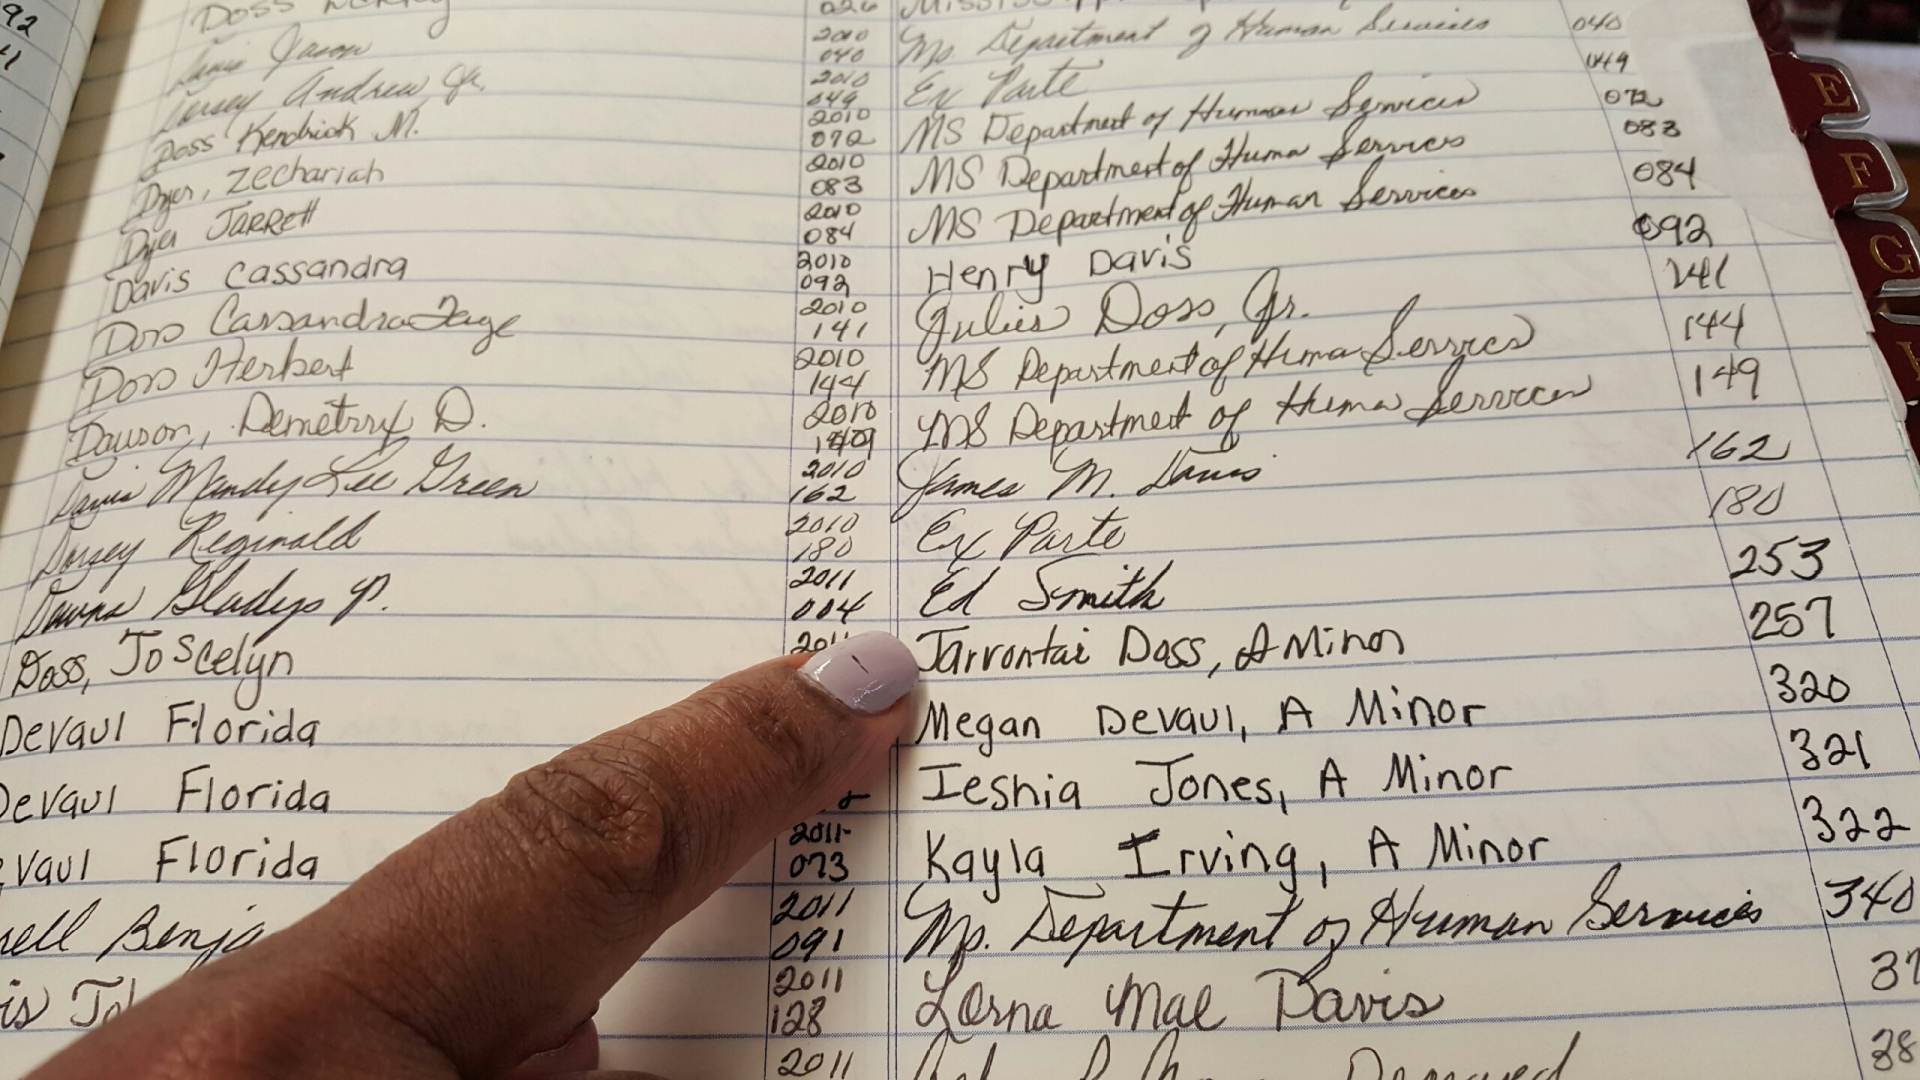 92
Doss 026
2010
Jason 040 Ms. Department of Human Services 040
2010
Dorsey Andrew Jr. 049 Ex Parte 049
2010
Doss Kendrick M. 072 MS Department of Human Services 072
2010
Dyer, Zechariah 083 MS Department of Human Services 083
2010
Dyer JARRETT 084 MS Department of Human Services 084
2010
Davis Cassandra 092 Henry Davis 092
2010
Doss Cassandra Faye 141 Julius Doss, Jr. 141
2010
Doss Herbert 144 MS Department of Human Services 144
2010
Dawson, Demetrix D. MS Department of Human Services 149
2010
Davis Mandy Lee Green 162 James M. Davis 162
2010
Dorsey Reginald 180 Ex Parte 180
2011
Gladys P. 004 Ed Smith 253
2011
Doss, Joscelyn Jarrontai Doss, A Minor 257
Devaul Florida Megan Devaul, A Minor 320
Devaul Florida Ieshia Jones, A Minor 321
2011
vaul Florida 073 Kayla Irving, A Minor 322
2011
ell Benja 091 Ms. Department of Human Services 340
2011
is 128 Lorna Mae Davis 37
2011 Deceased 38
E
F
G